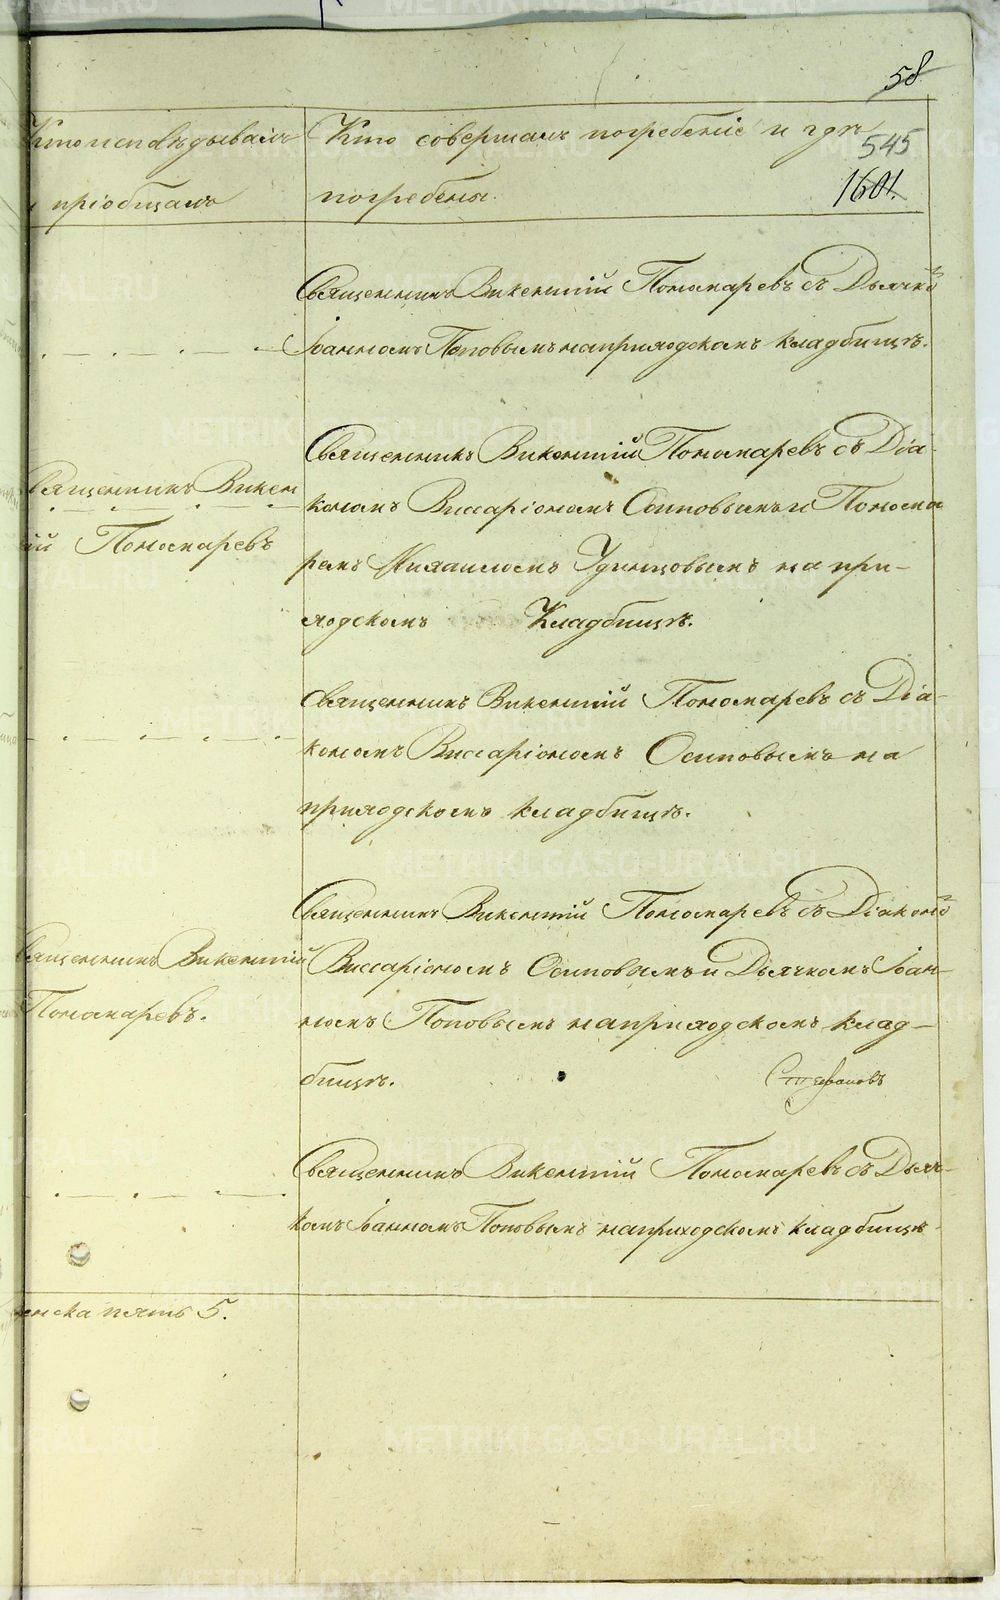 58
Кто исповѣдывалъ
и пріобщалъ
Кто совершалъ погребеніе и гдѣ
погребены.
545
1601.
Священникъ Викентій Пономаревъ съ Дьячко
Іоанномъ Поповымъ на приходскомъ кладбищѣ.
Священникъ Викен
ій Пономаревъ
Священникъ Викентій Пономаревъ съ Діа-
кономъ Виссаріономъ Осиповымъ и Понома
ремъ Михаиломъ Удинцовымъ на при-
ходскомъ Кладбищѣ.
Священникъ Викентій Пономаревъ съ Діа-
кономъ Виссаріономъ Осиповымъ на
приходскомъ кладбищѣ.
Священникъ Викентій
Пономаревъ.
Священникъ Викентій Пономаревъ съ Діакономъ
Виссаріономъ Осиповымъ и Дьячкомъ Іоан-
номъ Поповымъ на приходскомъ клад-
бищѣ.
Стефановъ
Священникъ Викентій Пономаревъ съ Дьяч-
комъ Іоанномъ Поповымъ на приходскомъ кладбищѣ
енска пять 5.
METRIKI.GASO-URAL.RU